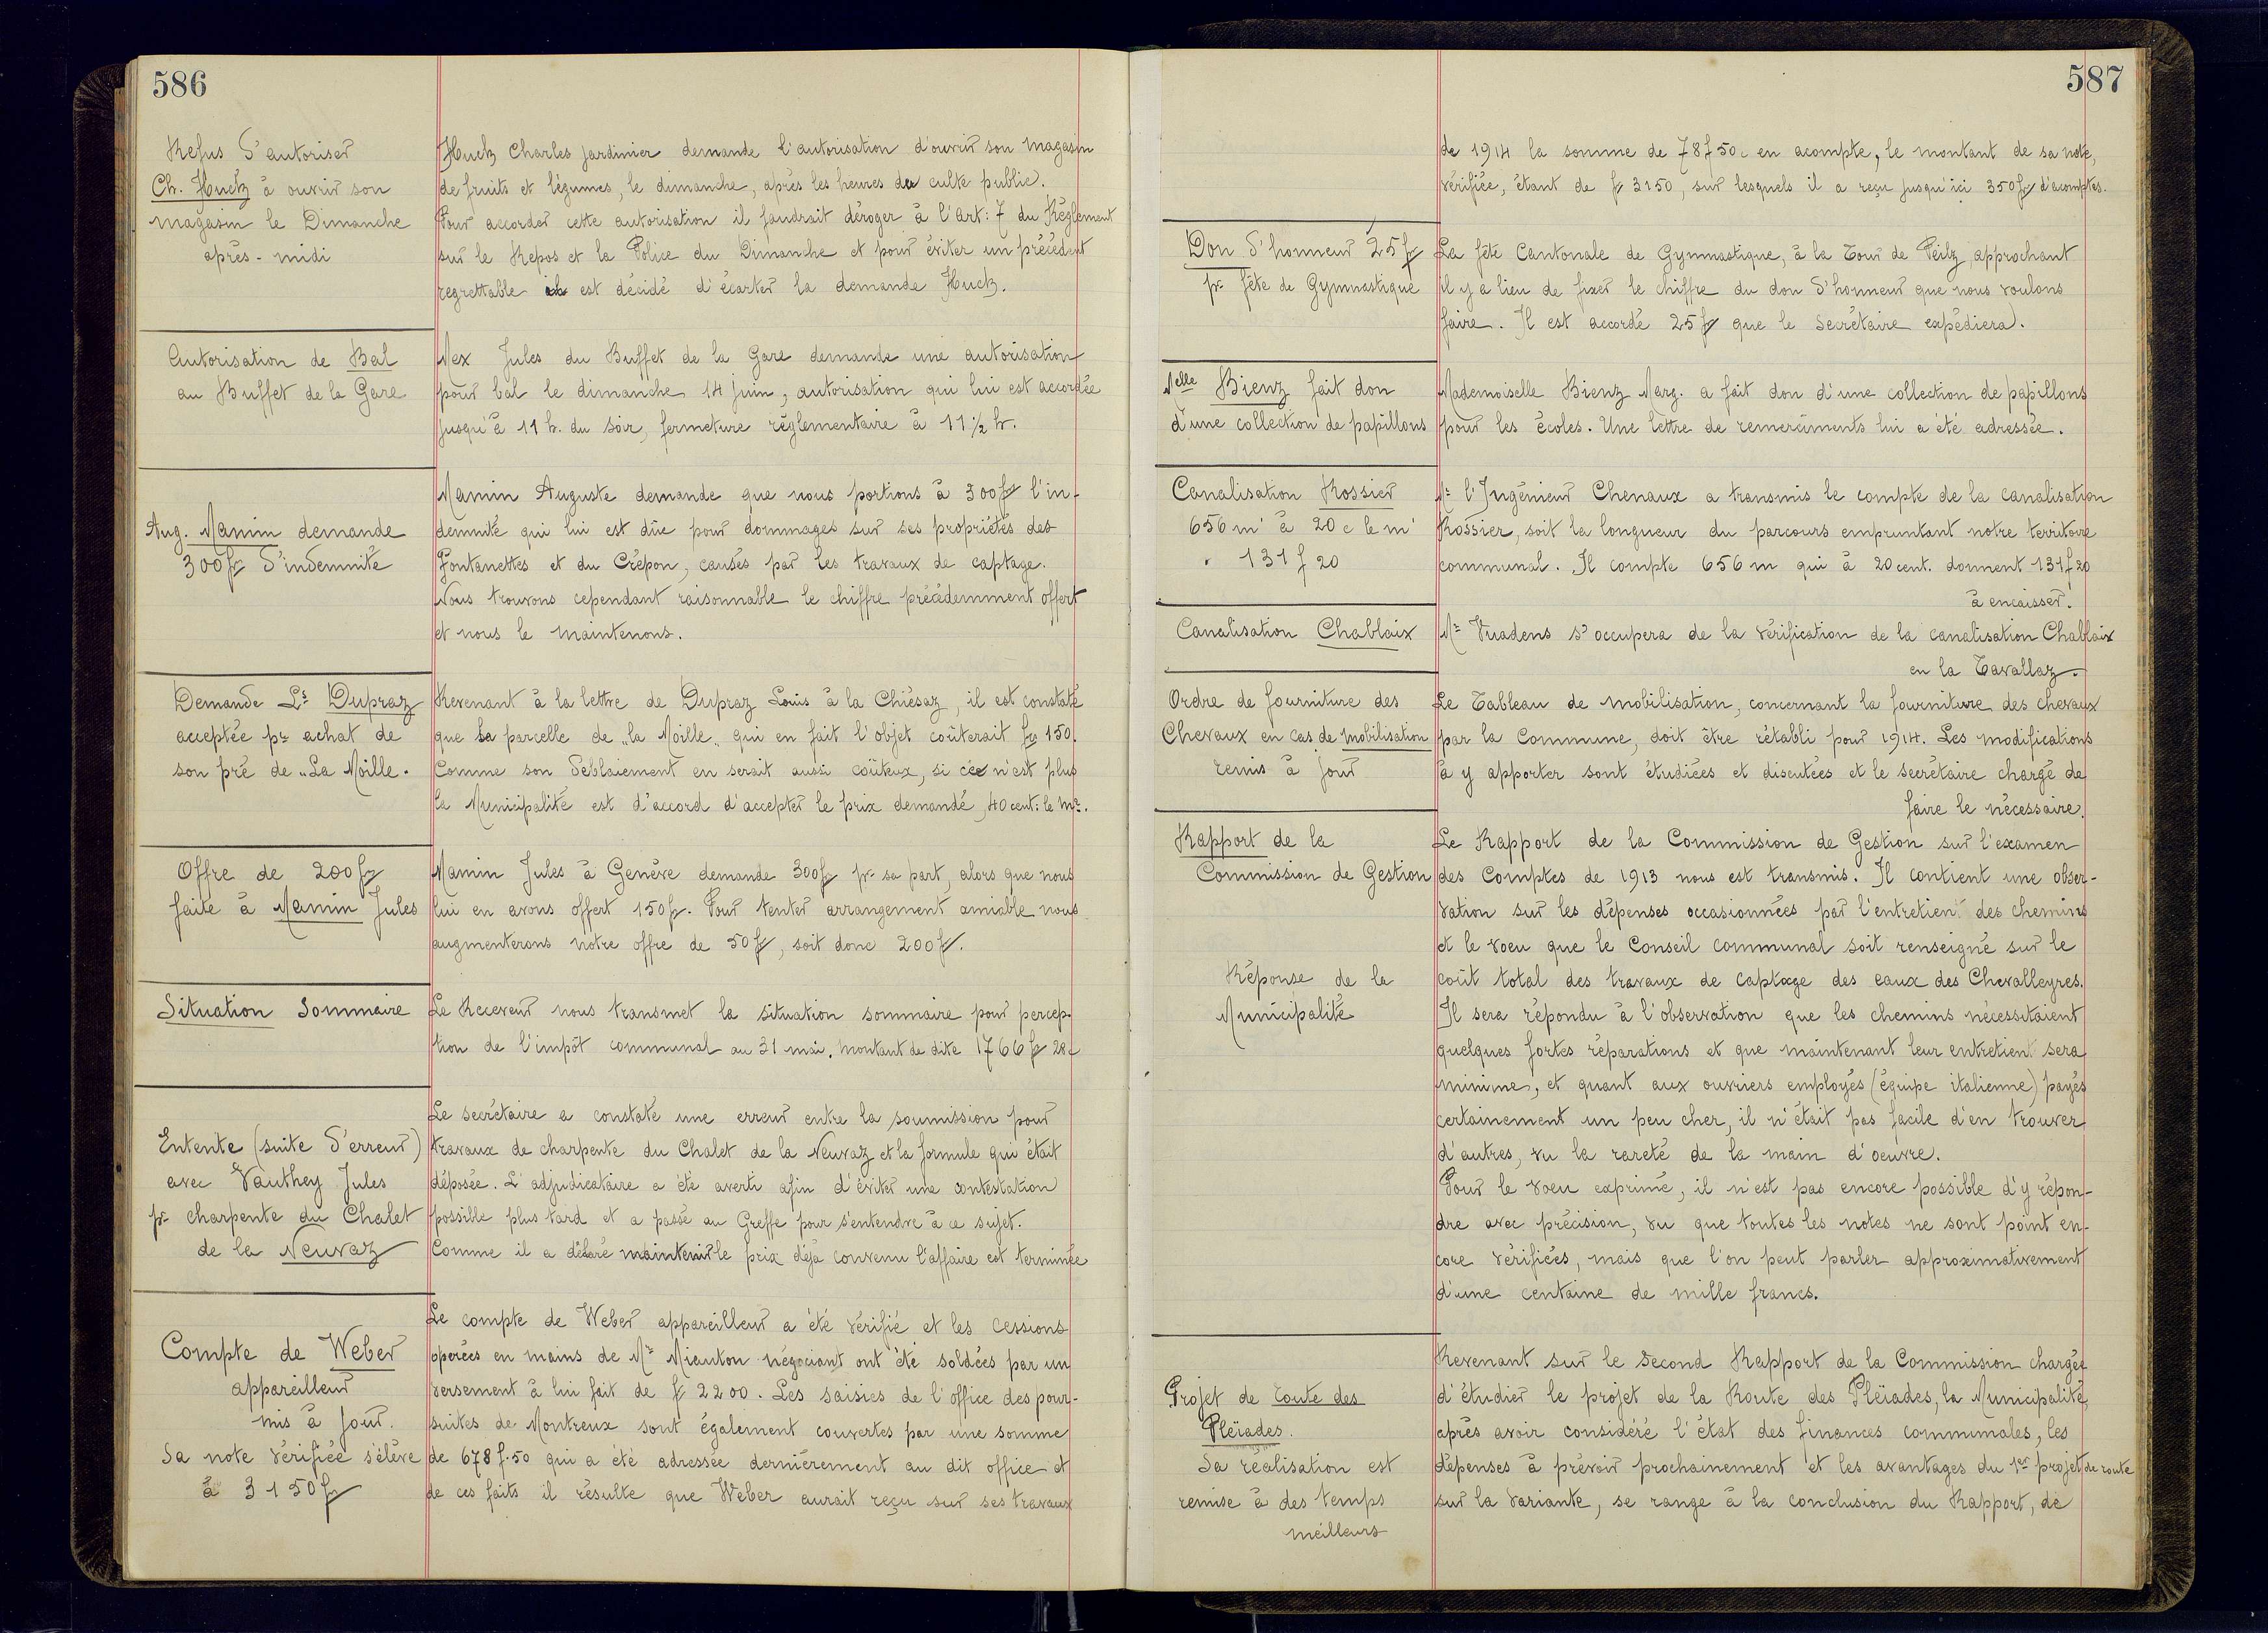 586
Refus d'autoriser
Ch. Huck à ouvrir son
magasin le Dimanche
après-midi
Huck Charles jardinier demande l'autorisation d'ouvrir son magasin
de fruits et légumes, le dimanche, après les heures du culte public.
Pour accorder cette autorisation il faudrait déroger à l'Art: 7 du Règlement
sur le Repos et la Police du Dimanche et pour éviter un précédent
regrettable il est décidé d'écarter la demande Huck.
Autorisation de Bal
au Buffet de la Gare
Mex Jules du Buffet de la Gare demande une autorisation
pour bal le dimanche 14 juin, autorisation qui lui est accordée
jusqu'à 11 h. du soir, fermeture règlementaire à 11 1/2 h.
Aug. Mamin demande
300 fr d'indemnité
Mamin Auguste demande que nous portions à 300 fr l'in-
demnité qui lui est dûe pour dommages sur ses propriétés des
Fontanettes et du Crépon, causés par les travaux de captage.
Nous trouvons cependant raisonnable le chiffre précédemment offert
et nous le maintenons.
Demande Ls Dupraz
acceptée pr achat de
son pré de „La Moille.
Revenant à la lettre de Dupraz Louis à la Chiésaz, il est constaté
que sa parcelle de „la Moille„ qui en fait l'objet coûterait fr 150.
Comme son déblaiement en serait aussi coûteux, si ce n'est plus
la Municipalité est d'accord d'accepter le prix demandé, 40 cent: le m2.
Offre de 200 fr
faite à Mamin Jules
Mamin Jules à Genève demande 300 fr pr sa part, alors que nous
lui en avons offert 150 fr. Pour tenter arrangement amiable nous
augmenterons notre offre de 50 fr, soit donc 200 fr.
Situation Sommaire
Le Receveur nous transmet la situation sommaire pour percep-
tion de l'impôt communal au 31 mai. Montant de dite 1766 fr 28 c
Entente (suite d'erreur)
avec Vauthey Jules
pr charpente du Chalet
de la Neuvaz
Le secrétaire a constaté une erreur entre la soumission pour
travaux de charpente du Chalet de la Neuvaz et la formule qui était
déposée. L'adjudicataire a été averti afin d'éviter une contestation
possible plus tard et a passé au Greffe pour s'entendre à ce sujet.
Comme il a déclaré maintenir le prix déjà convenu l'affaire est terminée
Compte de Weber
appareilleur
mis à jour.
Sa note vérifiée s'élève
à 3150 fr
Le compte de Weber appareilleur a été vérifié et les cessions
opérées en mains de Mr Mianton négociant ont été soldées par un
versement à lui fait de fr 2200. Les saisies de l'office des pour-
suites de Montreux sont également couvertes par une somme
de 678 f.50 qui a été adressée dernièrement au dit office et
de ces faits il résulte que Weber aurait reçu sur ses travaux
587
de 1914 la somme de 78 f 50 c en acompte, le montant de sa note,
vérifiée, étant de fr 3150, sur lesquels il a reçu jusqu'ici 350 fr d'acomptes.
Don d'honneur 25 fr
pr fête de Gymnastique
La fête Cantonale de Gymnastique, à la Tour de Peilz, approchant
il y a lieu de fixer le chiffre du don d'honneur que nous voulons
faire. Il est accordé 25 fr que le secrétaire expédiera.
Melle Bienz fait don
d'une collection de papillons
Mademoiselle Bienz Marg. a fait don d'une collection de papillons
pour les écoles. Une lettre de remerciments lui a été adressée.
Canalisation Rossier
656 m' à 20 c le m'
131 f 20
Mr l'Ingénieur Chenaux a transmis le compte de la canalisation
Rossier, soit la longueur du parcours empruntant notre territoire
communal. Il compte 656 m qui à 20 cent. donnent 131 f 20
à encaisser.
Canalisation Chablaix
Mr Vuadens s'occupera de la vérification de la canalisation Chablaix
en la Tavallaz.
Ordre de fourniture des
Chevaux en cas de mobilisation
remis à jour
Le Tableau de mobilisation, concernant la fourniture des chevaux
par la Commune, doit être rétabli pour 1914. Les modifications
à y apporter sont étudiées et discutées et le secrétaire chargé de
faire le nécessaire.
Rapport de la
Commission de Gestion
Le Rapport de la Commission de Gestion sur l'examen
des Comptes de 1913 nous est transmis. Il contient une obser-
vation sur les dépenses occasionnées par l'entretien des chemins
et le voeu que le Conseil communal soit renseigné sur le
coût total des travaux de captage des eaux des Chevalleyres.
Réponse de la
Municipalité
Il sera répondu à l'observation que les chemins nécessitaient
quelques fortes réparations et que maintenant leur entretien sera
minime, et quant aux ouvriers employés (équipe italienne) payés
certainement un peu cher, il n'était pas facile d'en trouver
d'autres, vu la rareté de la main d'oeuvre.
Pour le voeu exprimé, il n'est pas encore possible d'y répon-
dre avec précision, vu que toutes les notes ne sont point en-
core vérifiées, mais que l'on peut parler approximativement
d'une centaine de mille francs.
Projet de route des
Pléïades.
Sa réalisation est
remise à des temps
meilleurs
Revenant sur le second Rapport de la Commission chargée
d'étudier le projet de la Route des Pléïades, la Municipalité,
après avoir considéré l'état des finances communales, les
dépenses à prévoir prochainement et les avantages du 1er projet de route
sur la variante, se range à la conclusion du Rapport, de